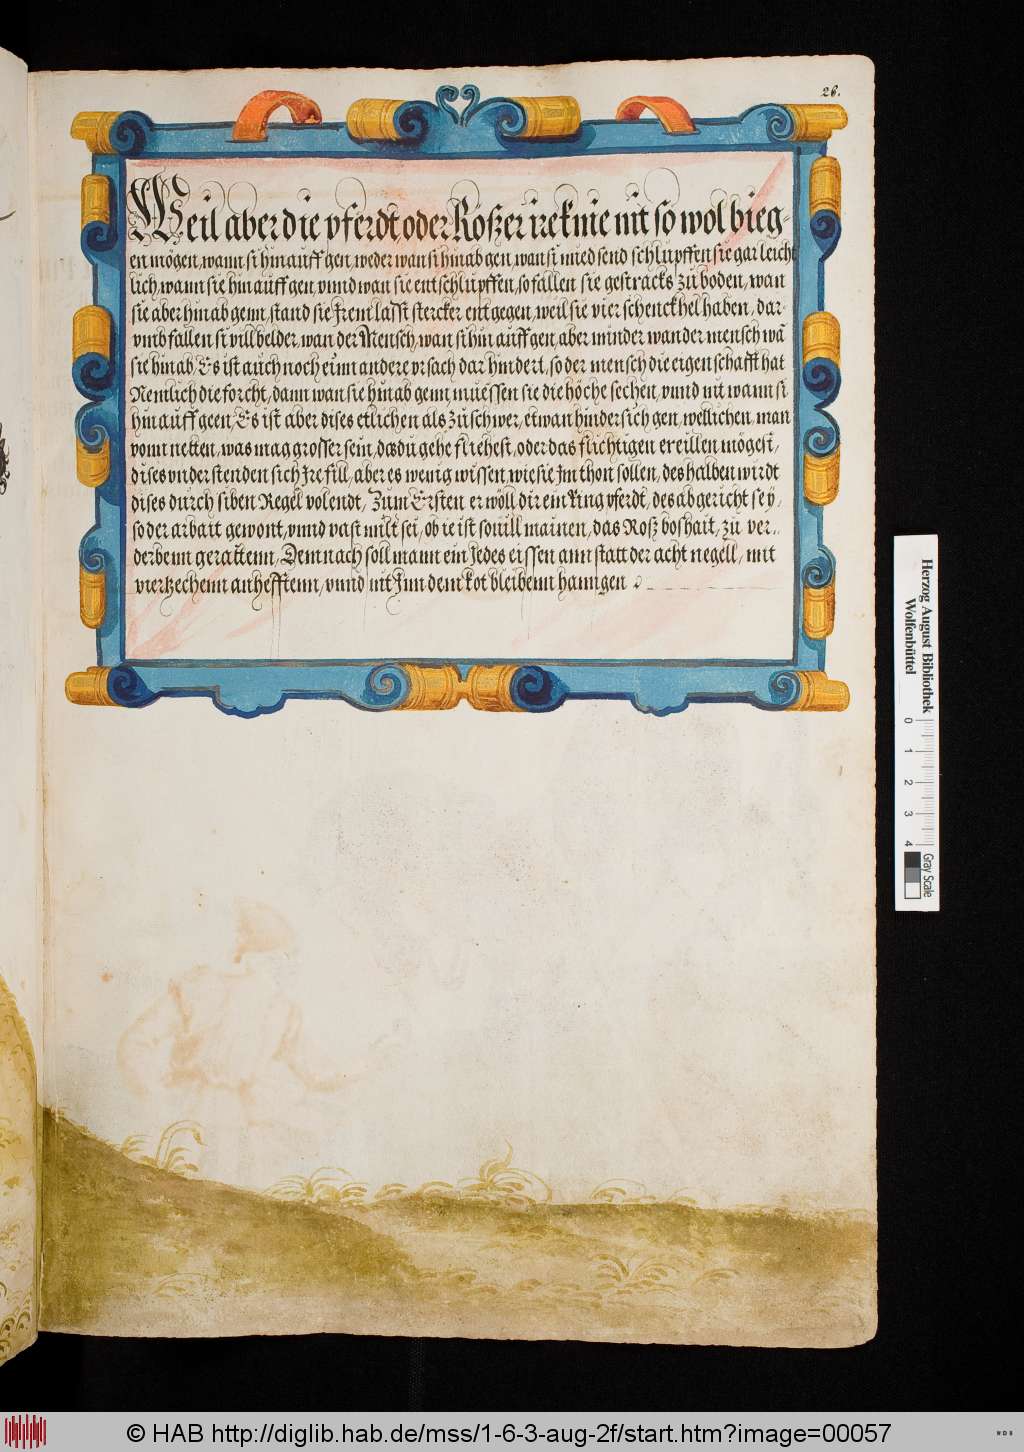 26.
Weil aber die pferdt, oder Roßer ire knie nit so wol bieg-
en mögen, wann si hinauff gen, weder wan si hinab gen, wan si mied send schlupffen sie gar leicht
lich, wann sie hin auff gen, vnnd wan sie entschlupffen, so fallen sie gestracks zu boden, wan
sie aber hinab genn, stand sie Jrem lasst stercker entgegen, weil sie vier schenckhel haben, dar-
vmb fallen si vill belder, wan der Mensch, wan si hin auff gen, aber minder wan der mensch wā
sie hinab, Es ist auch noch einn andere vrsach dar hindert, so der mensch die eigenschafft hat
Nemlich die forcht, dann wan sie hinab genn, müessen sie die höche sechen, vnnd nit wann si
hin auff geen, Es ist aber dises etlichen als zu schwer, etwan hinder sich gen, wellichen, man
vonn netten, was mag grosser sein, das du gehe fliehest, oder das flichtigen ereillen mögest,
dises vnder stenden sich Jre fill, aber es wenig wissen, wie sie Jm thon sollen, deshalben wirdt
dises durch siben Regel volendt, Zum Ersten er wöll dir ein Ring pferdt, des abgericht sey,
so der arbait gewont, vnnd vast milt sei, ob ie ist souill mainen, das Roß boshait, zu ver..
derbenn gerattenn, Demnach soll mann ein Jedes eissen ann statt der acht negell, mit
vierzechenn anhefftenn, vnnd nit Jnn dem kot bleibenn hanngen
Herzog August Bibliothek
Wolfenbüttel
0 1 2 3 4
Gray Scale
© HAB http://diglib.hab.de/mss/1-6-3-aug-2f/start.htm?image=00057